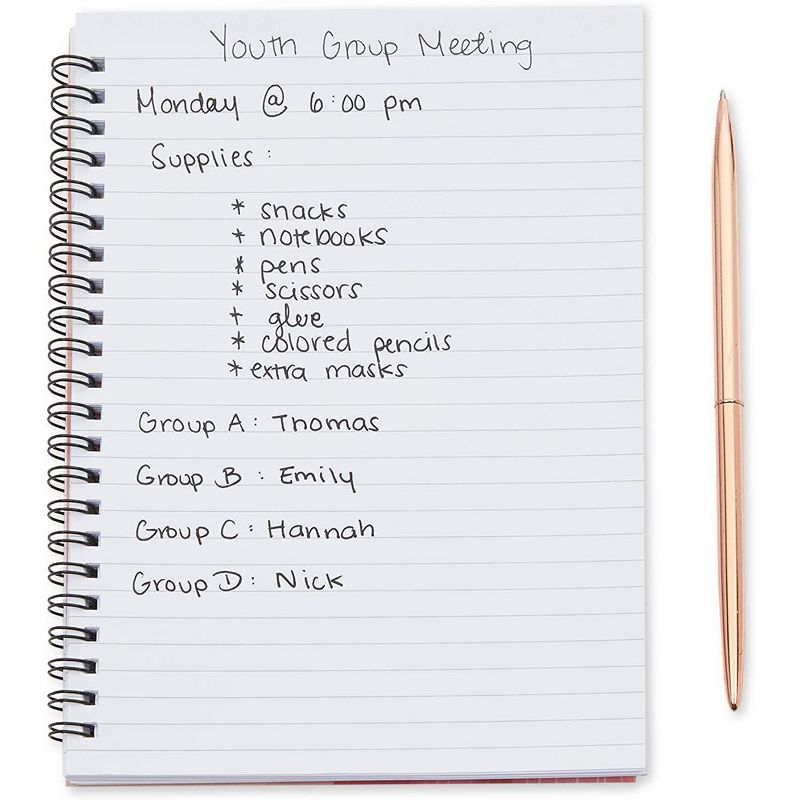 Youth Group Meeting
Monday @ 6:00 pm
Supplies :
* snacks
+ notebooks
* pens
* scissors
+ glue
* colored pencils
* extra masks
Group A : Thomas
Group B : Emily
Group C : Hannah
Group D : Nick